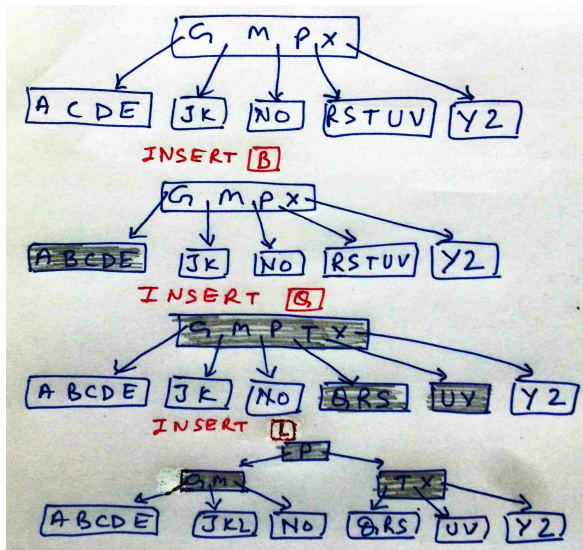 G M P X
A C D E JK NO RSTUV YZ
INSERT B
G M P X
A B C D E JK NO RSTUV YZ
INSERT Q
G M P T X
A B C D E JK NO QRS UV YZ
INSERT L
P
G M T X
A B C D E JKL NO QRS UV YZ